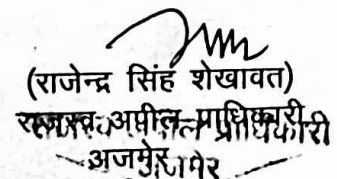 (राजेन्द्र सिंह शेखावत)
राजस्व अपील प्राधिकारी
अजमेर